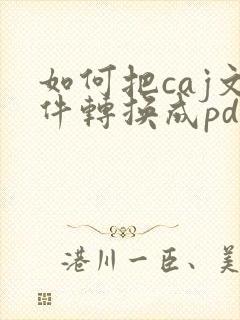 如何把caj文
件轉換成pd
港川一臣、美